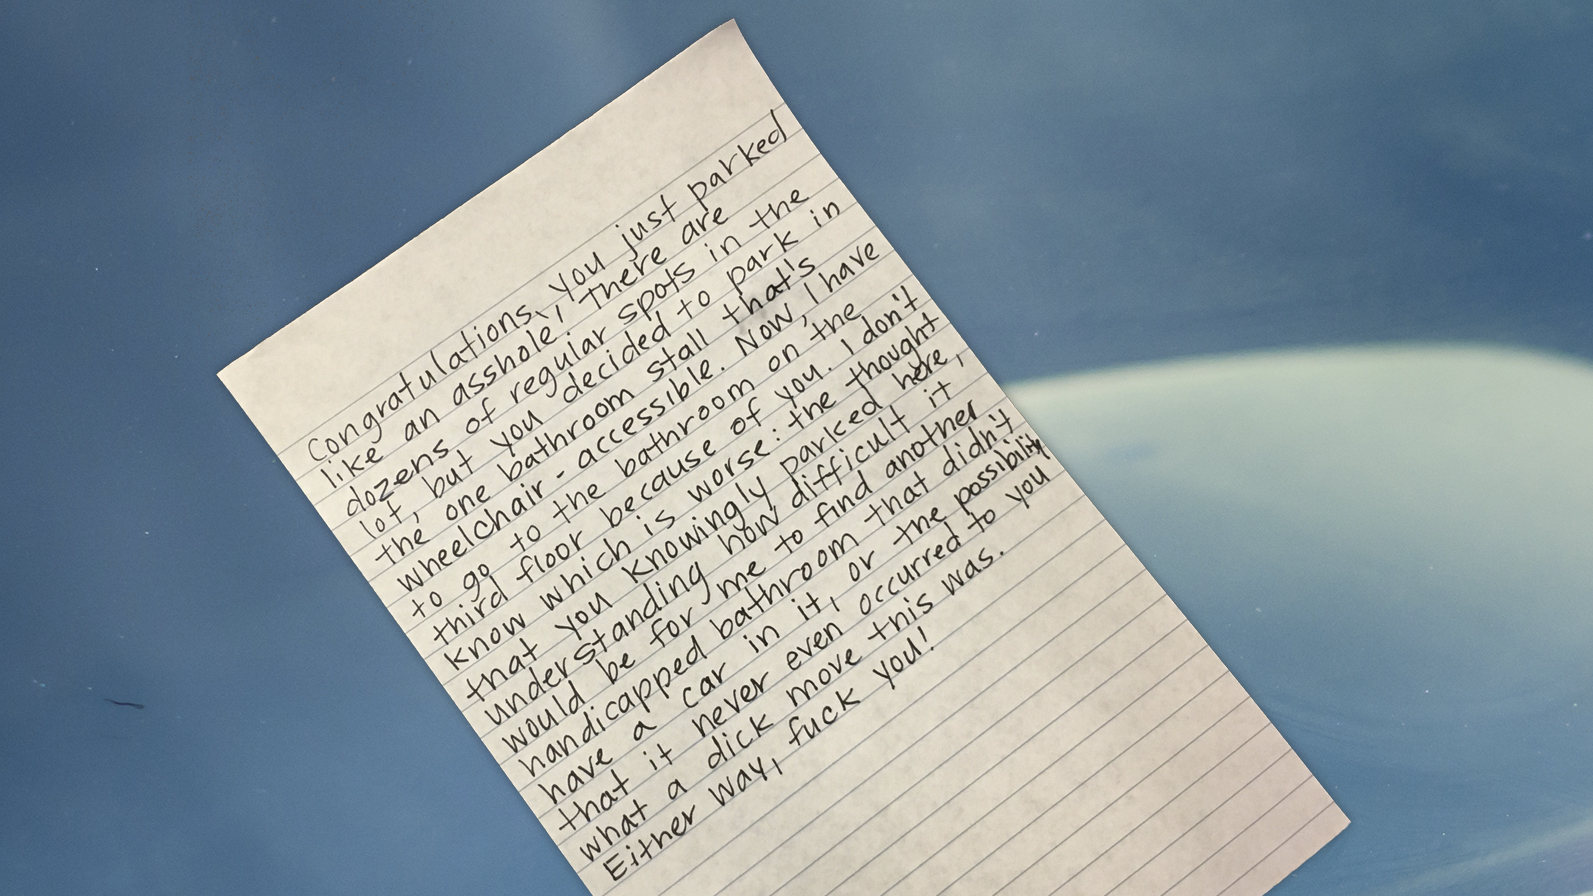 Congratulations, you just parked
like an asshole, There are
dozens of regular spots in the
lot, but you decided to park in
the one bathroom stall that's
wheelchair-accessible. Now, I have
to go to the bathroom on the
third floor because of you. I don't
know which is worse: the thought
that you knowingly parked here,
understanding how difficult it
would be for me to find another
handicapped bathroom that didn't
have a car in it, or the possibility
that it never even occurred to you
what a dick move this was.
Either way, fuck you!